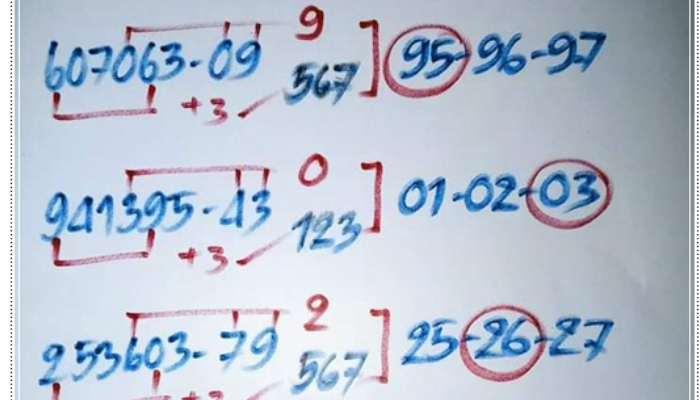 607063-09 9 567 95-96-97
+3
941395-43 0 123 01-02-03
+3
253603-79 2 567 25-26-27
+3